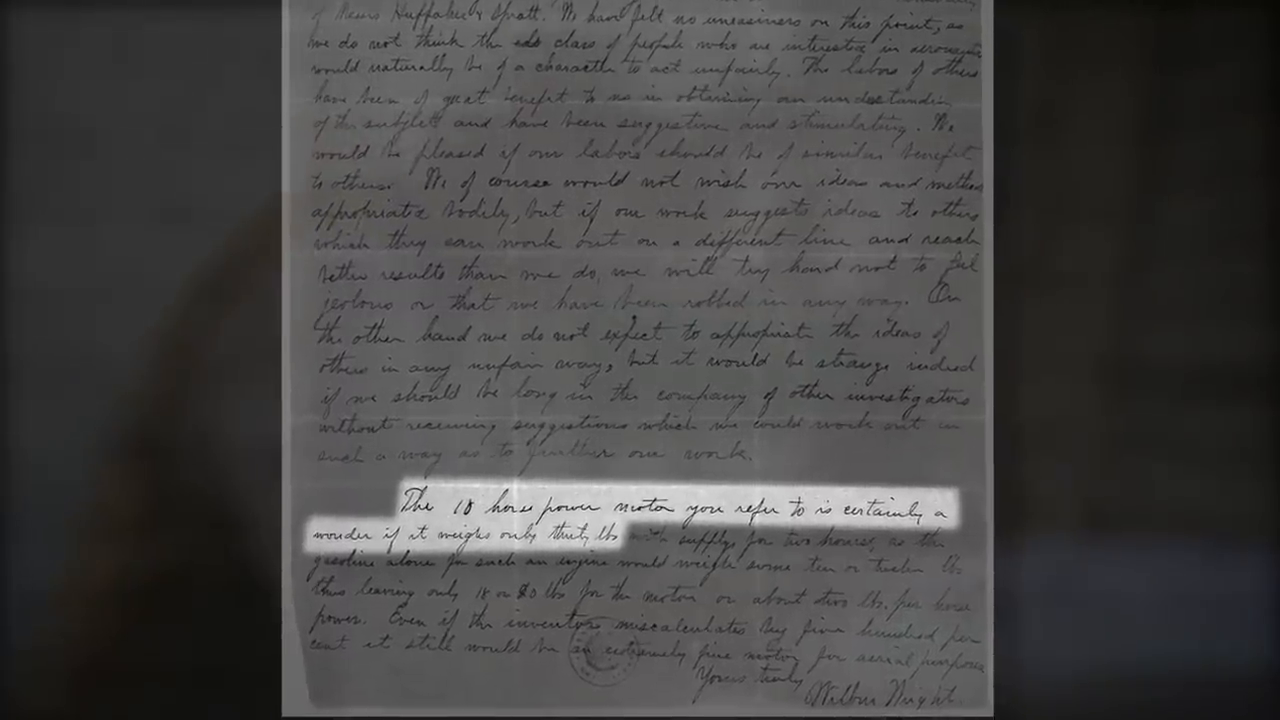 of Messrs Huffaker & Spratt. We have felt no uneasiness on this point, as
we do not think the class of people who are interested in aeronautics
would naturally be of a character to act unfairly. The labors of others
have been of great benefit to us in obtaining an understanding
of the subject and have been suggestive and stimulating. We
would be pleased if our labors should be of similar benefit
to others. We of course would not wish our ideas and methods
appropriated bodily, but if our work suggests ideas to others
which they can work out on a different line and reach
better results than we do, we will try hard not to feel
jealous or that we have been robbed in any way. On
the other hand we do not expect to appropriate the ideas of
others in any unfair way, but it would be strange indeed
if we should be long in the company of other investigators
without receiving suggestions which we could work out in
such a way as to further our work.
The 10 horse power motor you refer to is certainly a
wonder if it weighs only thirty lbs with supply for two hours, as the
gasoline alone for such an engine would weigh some ten or twelve lbs
thus leaving only 18 or 20 lbs for the motor or about two lbs. per horse
power. Even if the inventor miscalculates by five hundred per
cent it still would be an extremely fine motor for aerial purposes
Yours truly
Wilbur Wright.